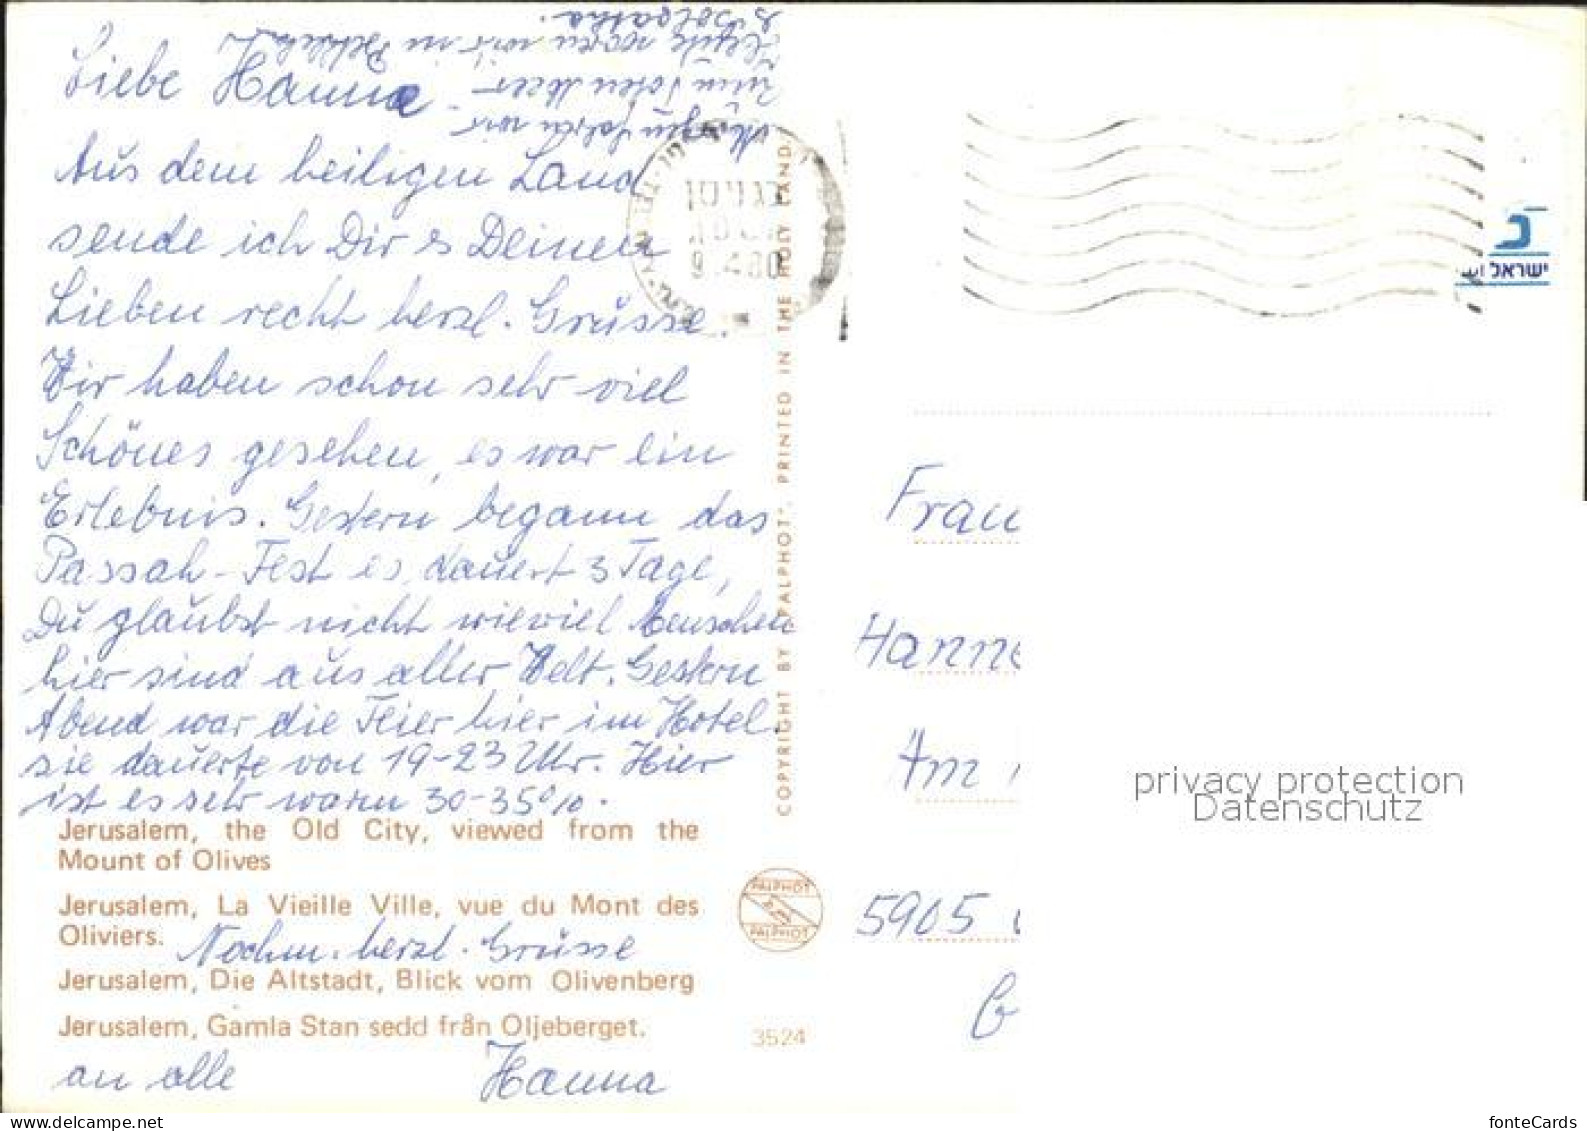 Liebe Hanna
Aus dem heiligen Land
sende ich Dir & Deinen
Lieben recht herzl. Grüsse.
Wir haben schon sehr viel
Schönes gesehen, es war ein
Erlebnis. Gestern begann das
Passah-Fest es dauert 3 Tage,
Du glaubst nicht wieviel Menschen
hier sind aus aller Welt. Gestern
Abend war die Feier hier im Hotel.
sie dauerte von 19-23 Uhr. Hier
ist es sehr warm 30-35%.
Morgen fahren wir
zum Toten Meer
Heute waren wir in Bethlehem
& Golgatha.
Jerusalem, the Old City, viewed from the
Mount of Olives
Jerusalem, La Vieille Ville, vue du Mont des
Oliviers.
Nochm. herzl. Grüsse
Jerusalem, Die Altstadt, Blick vom Olivenberg
Jerusalem, Gamla Stan sedd från Oljeberget.
an alle Hanna
3524
PALPHOT
PALPHOT
COPYRIGHT BY "PALPHOT", PRINTED IN THE HOLY LAND.
ישראל
Frau
Hanne
Am
5905
G
privacy protection
Datenschutz
www.delcampe.net
fonteCards